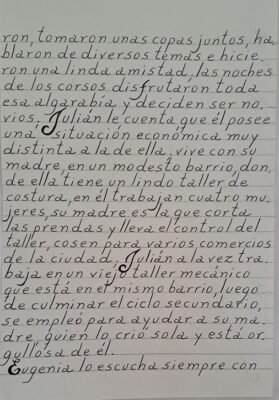 ron, tomaron unas copas juntos, ha,
blaron de diversos temas e hicie,
ron una linda amistad, las noches
de los corsos disfrutaron toda
esa algarabía y deciden ser no,
vios. Julián le cuenta que él posee
una situación económica muy
distinta a la de ella, vive con su
madre, en un modesto barrio, don,
de ella tiene un lindo taller de
costura, en él trabajan cuatro mu,
jeres, su madre es la que corta
las prendas y lleva el control del
taller, cosen para varios comercios
de la ciudad. Julián a la vez tra,
baja en un viejo taller mecánico
que está en el mismo barrio, luego
de culminar el ciclo secundario,
se empleó para ayudar a su ma,
dre, quien lo crió sola y está or,
gullosa de él.
Eugenia lo escucha siempre con